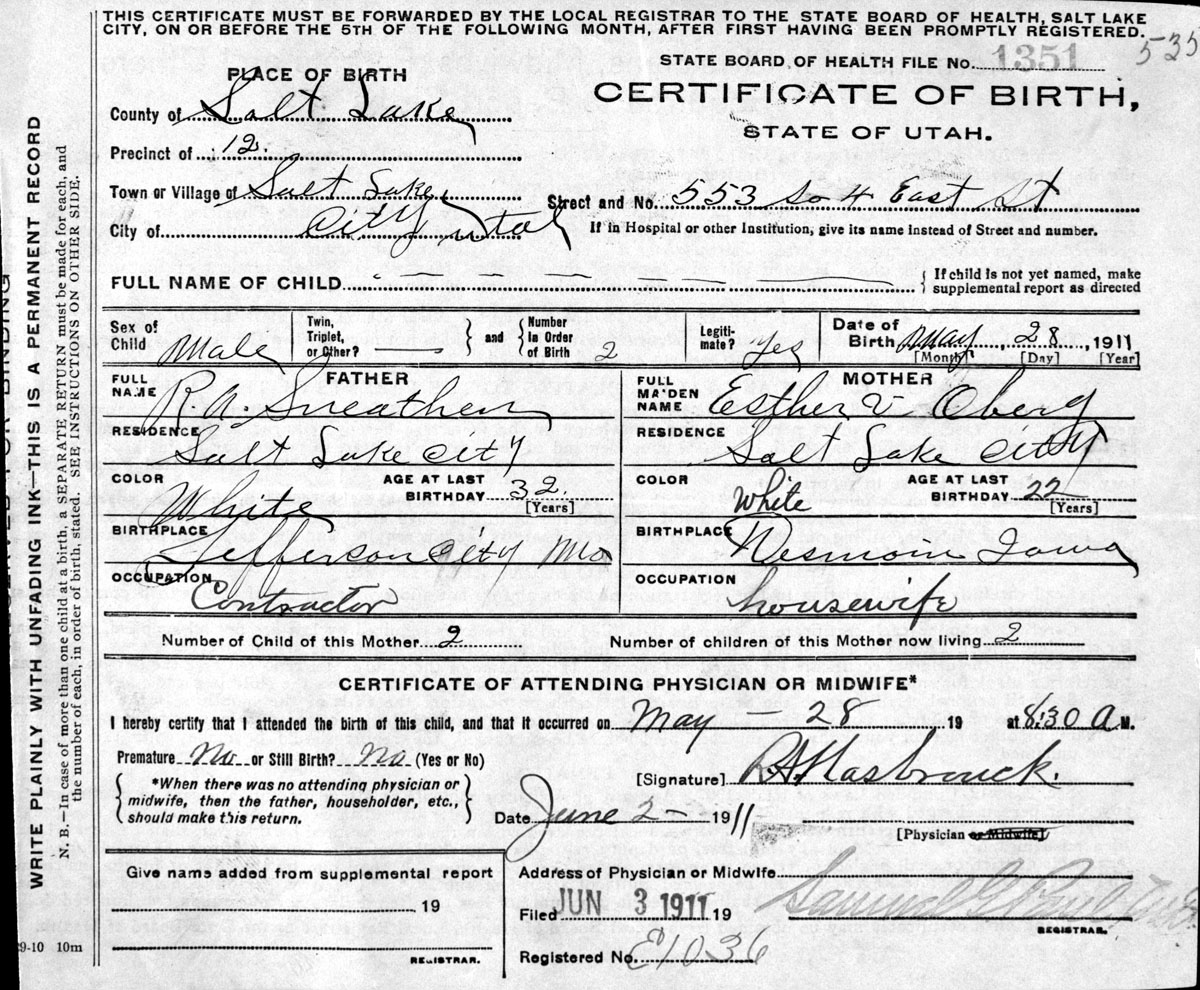 THIS CERTIFICATE MUST BE FORWARDED BY THE LOCAL REGISTRAR TO THE STATE BOARD OF HEALTH, SALT LAKE
CITY, ON OR BEFORE THE 5TH OF THE FOLLOWING MONTH, AFTER FIRST HAVING BEEN PROMPTLY REGISTERED.
535
STATE BOARD OF HEALTH FILE No. 1351
CERTIFICATE OF BIRTH,
STATE OF UTAH.
PLACE OF BIRTH
County of Salt Lake
Precinct of 12.
Town or Village of Salt Lake
City of City Utah
Street and No. 553 So 4 East St
If in Hospital or other Institution, give its name instead of Street and number.
FULL NAME OF CHILD
If child is not yet named, make
supplemental report as directed
Sex of Child Male
Twin, Triplet, or Other? and Number in Order of Birth 2
Legiti-mate? Yes
Date of Birth May 28, 1911
[Month] [Day] [Year]
FATHER
FULL NAME R. A. Sneathen
RESIDENCE Salt Lake City
COLOR White AGE AT LAST BIRTHDAY 32. [Years]
BIRTHPLACE Jefferson City Mo
OCCUPATION Contractor
MOTHER
FULL MAIDEN NAME Esther V Oberg
RESIDENCE Salt Lake City
COLOR White AGE AT LAST BIRTHDAY 22 [Years]
BIRTHPLACE Iowa
OCCUPATION housewife
Number of Child of this Mother 2 Number of children of this Mother now living 2
CERTIFICATE OF ATTENDING PHYSICIAN OR MIDWIFE*
I hereby certify that I attended the birth of this child, and that it occurred on May - 28 19 at 8:30 A M.
Premature No or Still Birth? No (Yes or No)
*When there was no attending physician or
midwife, then the father, householder, etc.,
should make this return.
[Signature] R A Hasbrouck.
Date June 2 - 1911
[Physician or Midwife]
Give name added from supplemental report
19
REGISTRAR.
Address of Physician or Midwife
Filed JUN 3 1911 19
Samuel G Paul
REGISTRAR.
Registered No. E1036
WRITE PLAINLY WITH UNFADING INK—THIS IS A PERMANENT RECORD
N. B.—In case of more than one child at a birth, a SEPARATE RETURN must be made for each, and
the number of each, in order of birth, stated. SEE INSTRUCTIONS ON OTHER SIDE.
FOR BINDING
29-10 10m